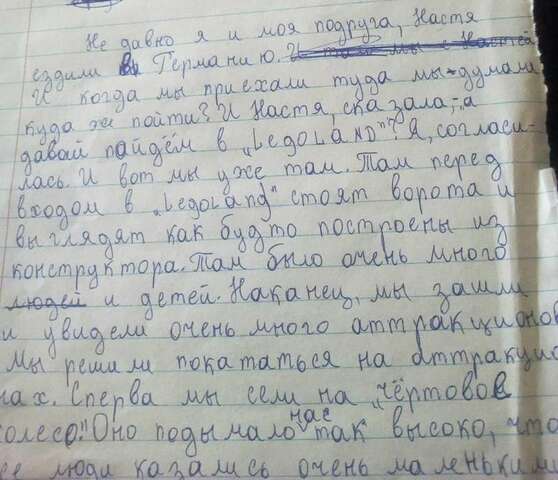 Не давно я и моя подруга, Настя
ездили в Германию.
И когда мы приехали туда мы думали
куда же пойти? И Настя, сказала;-а
давай пойдём в „LegoLAND"? Я, согласи-
лась. И вот мы уже там. Там перед
входом в „Legoland" стоят ворота и
выглядят как будто построены из
конструктора. Там было очень много
людей и детей. Наканец, мы зашли
и увидели очень много аттракционов
Мы решили покататься на аттракцио
нах. Сперва мы сели на „чёртовое
колесо". Оно подымало нас так высоко, что
все люди казались очень маленькими